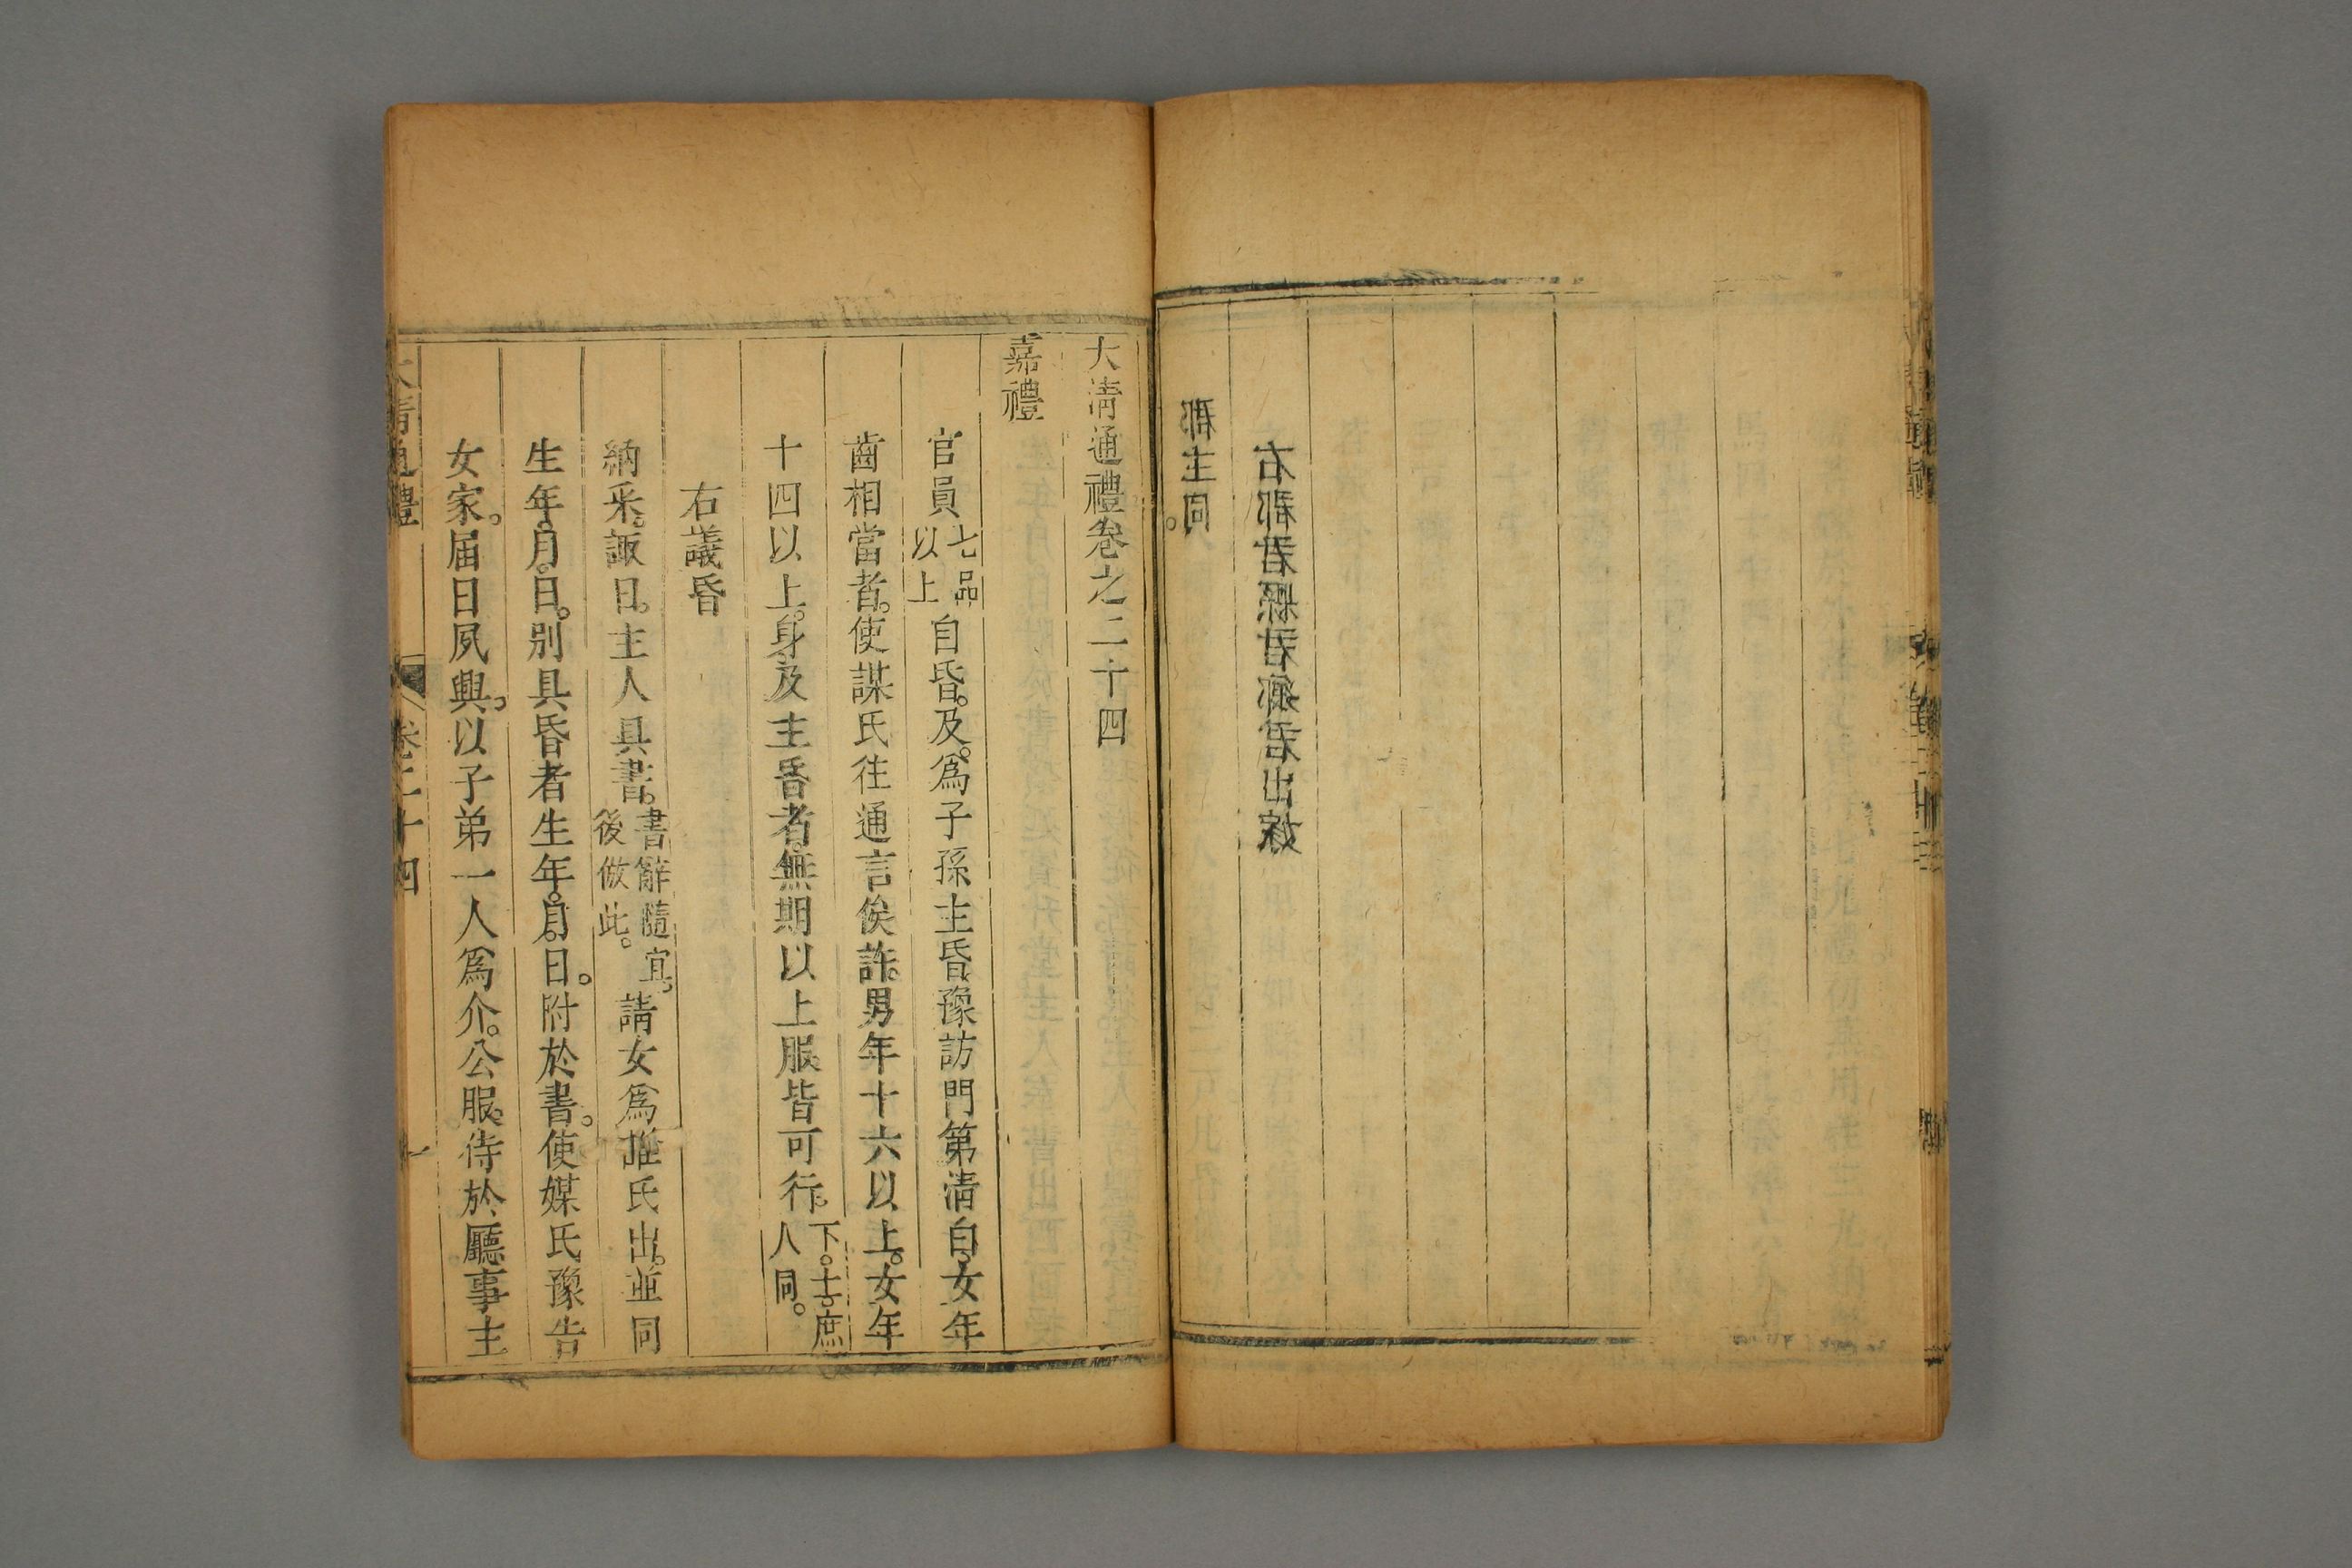 郡主同。
右郡君縣君鄉君出嫁
大清通禮卷之二十四
嘉禮
官員七品以上自昏。及。爲子孫主昏豫訪門第清白。女年
齒相當者。使謀氏往通言俟許。男年十六以上。女年
十四以上。身及主昏者。無期以上服皆可行。下。士庶人同。
右議昏
納采。諏日。主人具書。書辭隨宜。後倣此。請女爲誰氏出。並同
生年。月。日。別具昏者生年。月。日。附於書。使媒氏豫告
女家。届日夙興。以子弟一人爲介。公服。待於廳事主
大清通禮 卷二十四 一